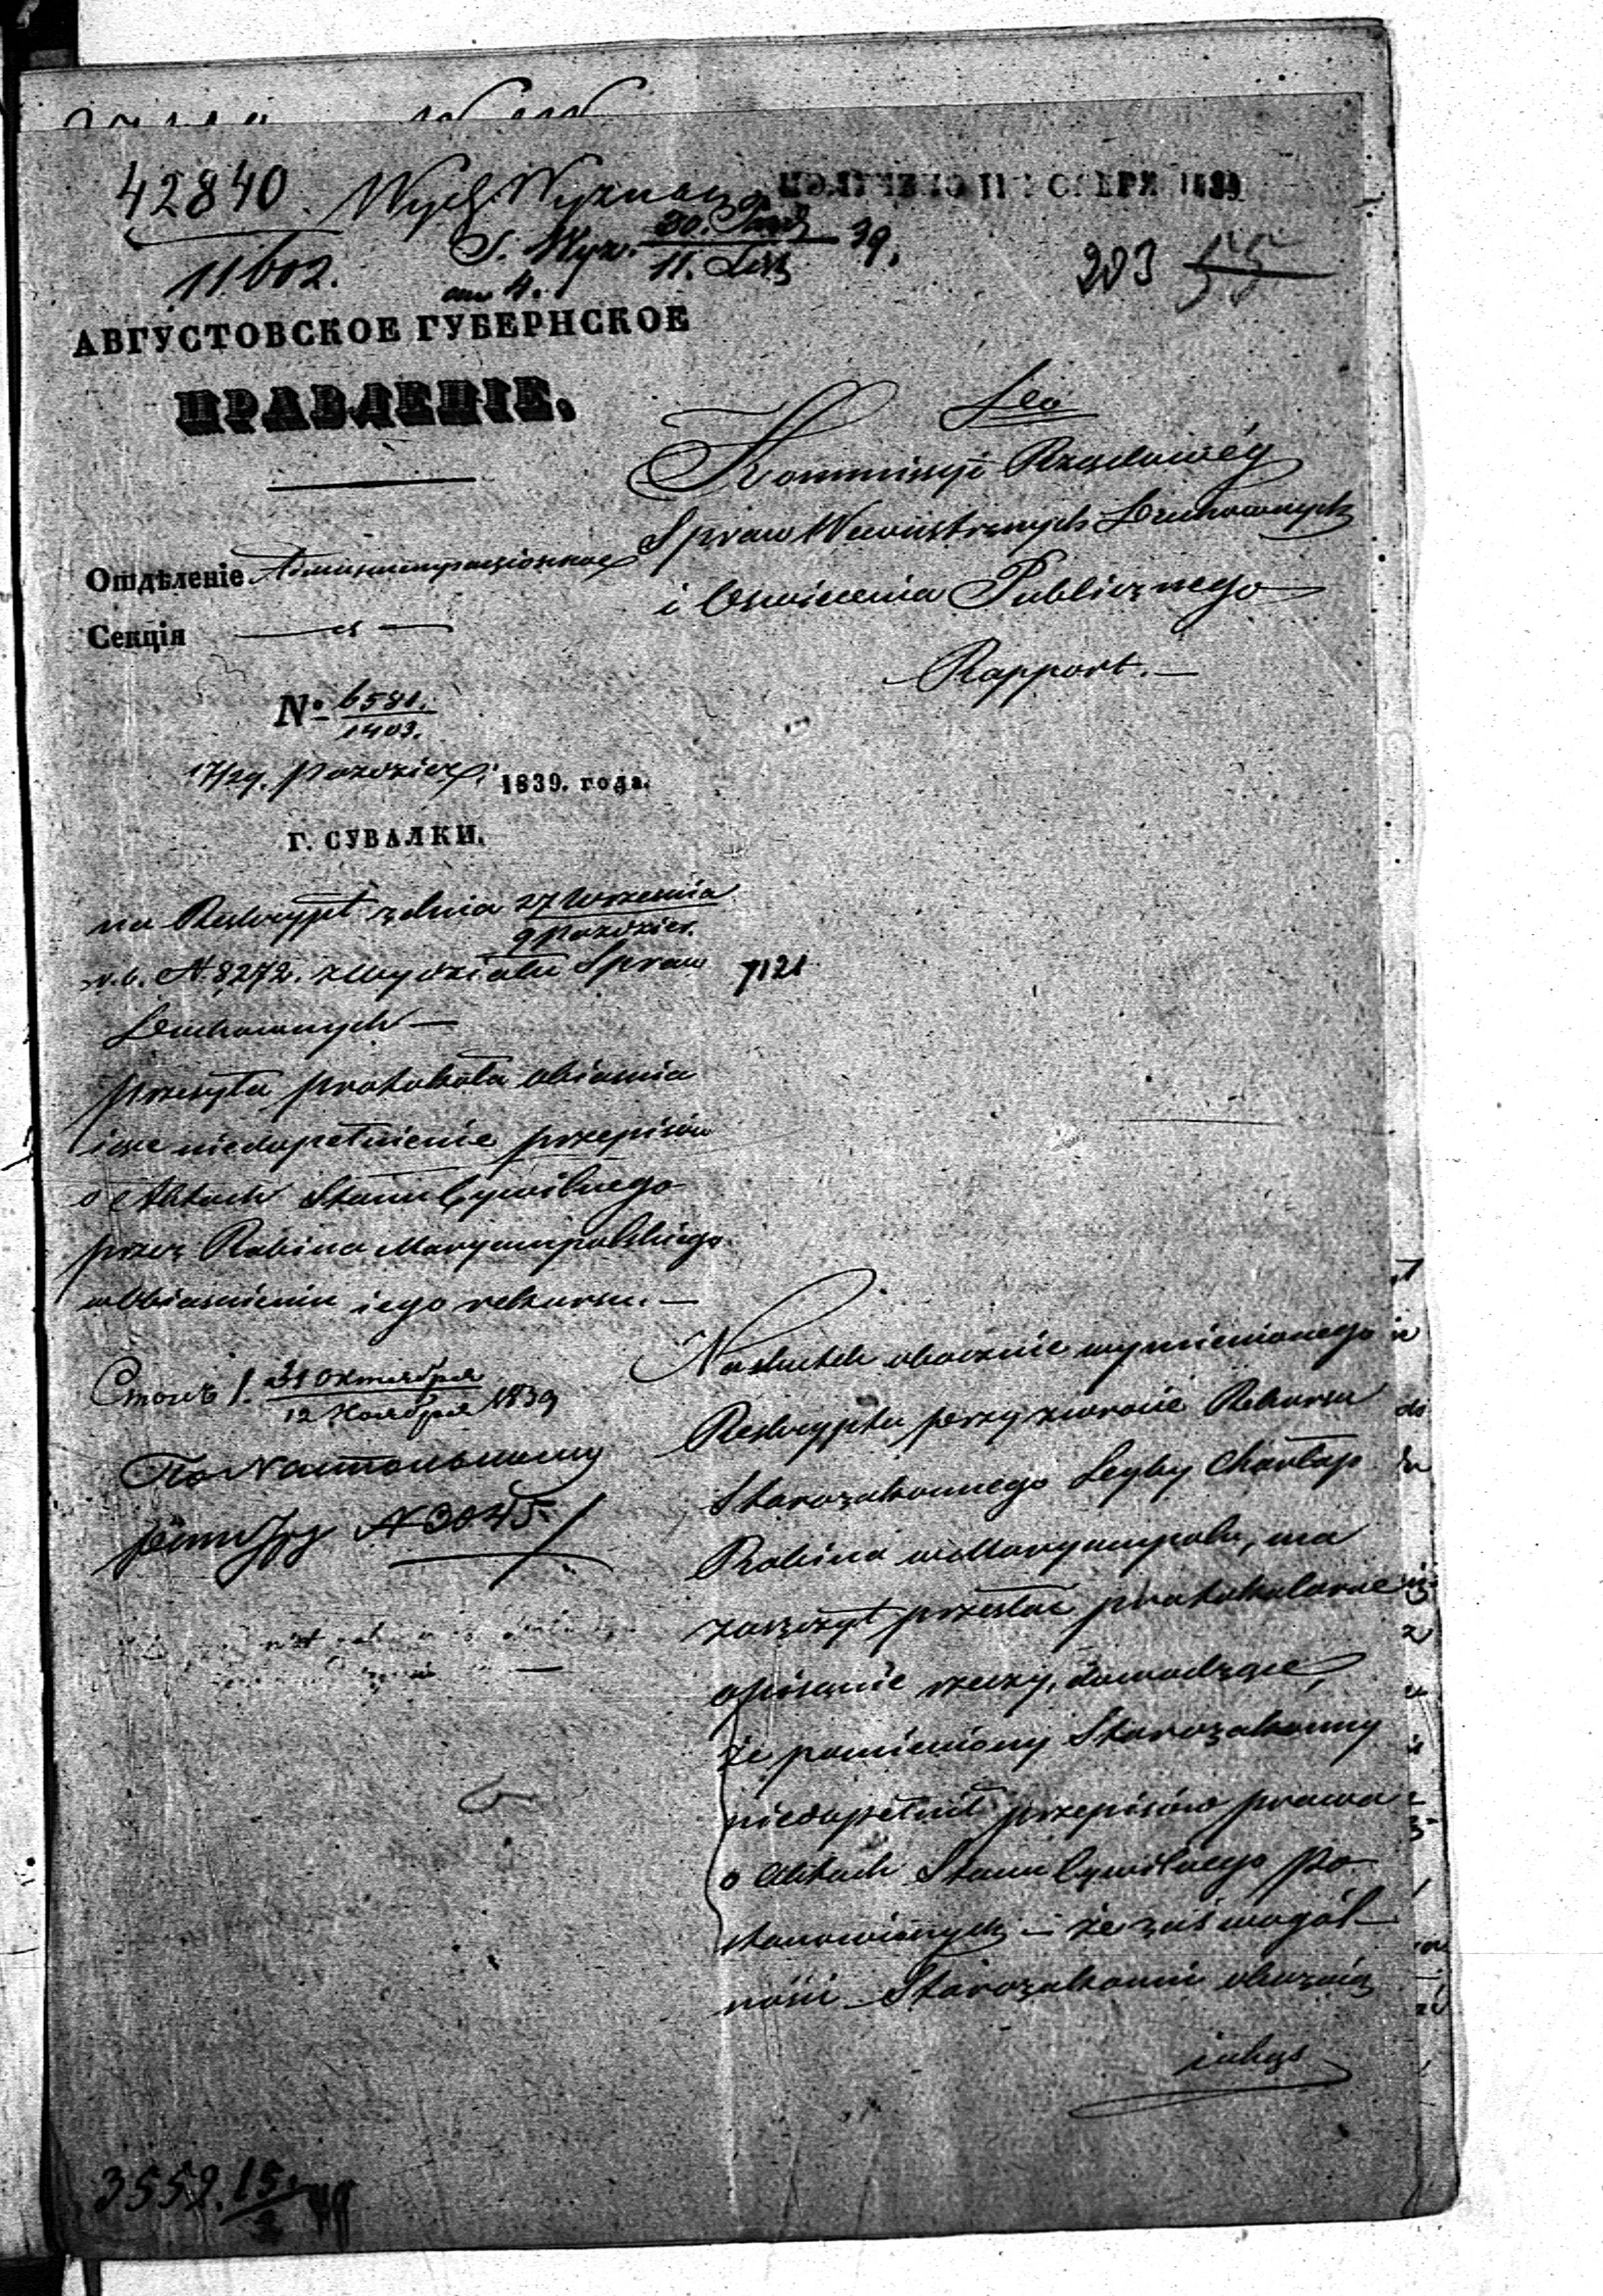 42840. Wydz. Wyznań
ПОЛУЧЕНО 11 НОЯБРЯ 1839
11602. S. Wyz. 30. Paźdz / 11. List 39.
203 55
АВГУСТОВСКОЕ ГУБЕРНСКОЕ
ПРАВЛЕНІЕ.
Отдѣленіе Администраціонное
Секція
№ 6581. / 1403.
17/29. Paździer. 1839. года.
Г. СУВАЛКИ.
Do
Kommissyi Rządowéy
Spraw Wewnętrznych Duchownych
i Oświecenia Publicznego
Rapport. —
na Reskrypt z dnia 27 Września / 9 Paździer.
r. b. N. 8272. z Wydziału Spraw 7121
Duchownych —
przesyła protokoła obiaśnia
iące niedopełnienie przepisów
o Aktach Stanu Cywilnego
przez Rabina Maryampolskiego
w Obiaśnieniu iego rekursu. —
Столъ 1. 31 Октября / 12 Ноября 1839
По Настольному
N 3045.
Naskutek obocznie wymienionego
Reskryptu przy zwrocie Rekursu
Starozakonnego Leyby Charłap
Rabina w Maryampolu, ma
zaszczyt przesłać protokolarne
opisanie rzeczy, dowodzące,
że pomieniony Starozakonny
niedopełnił przepisów prawa
o Aktach Stanu Cywilnego po
stanowionych — że zaś w ogól-
ności Starozakonni okazują
iakąś
3552. 15